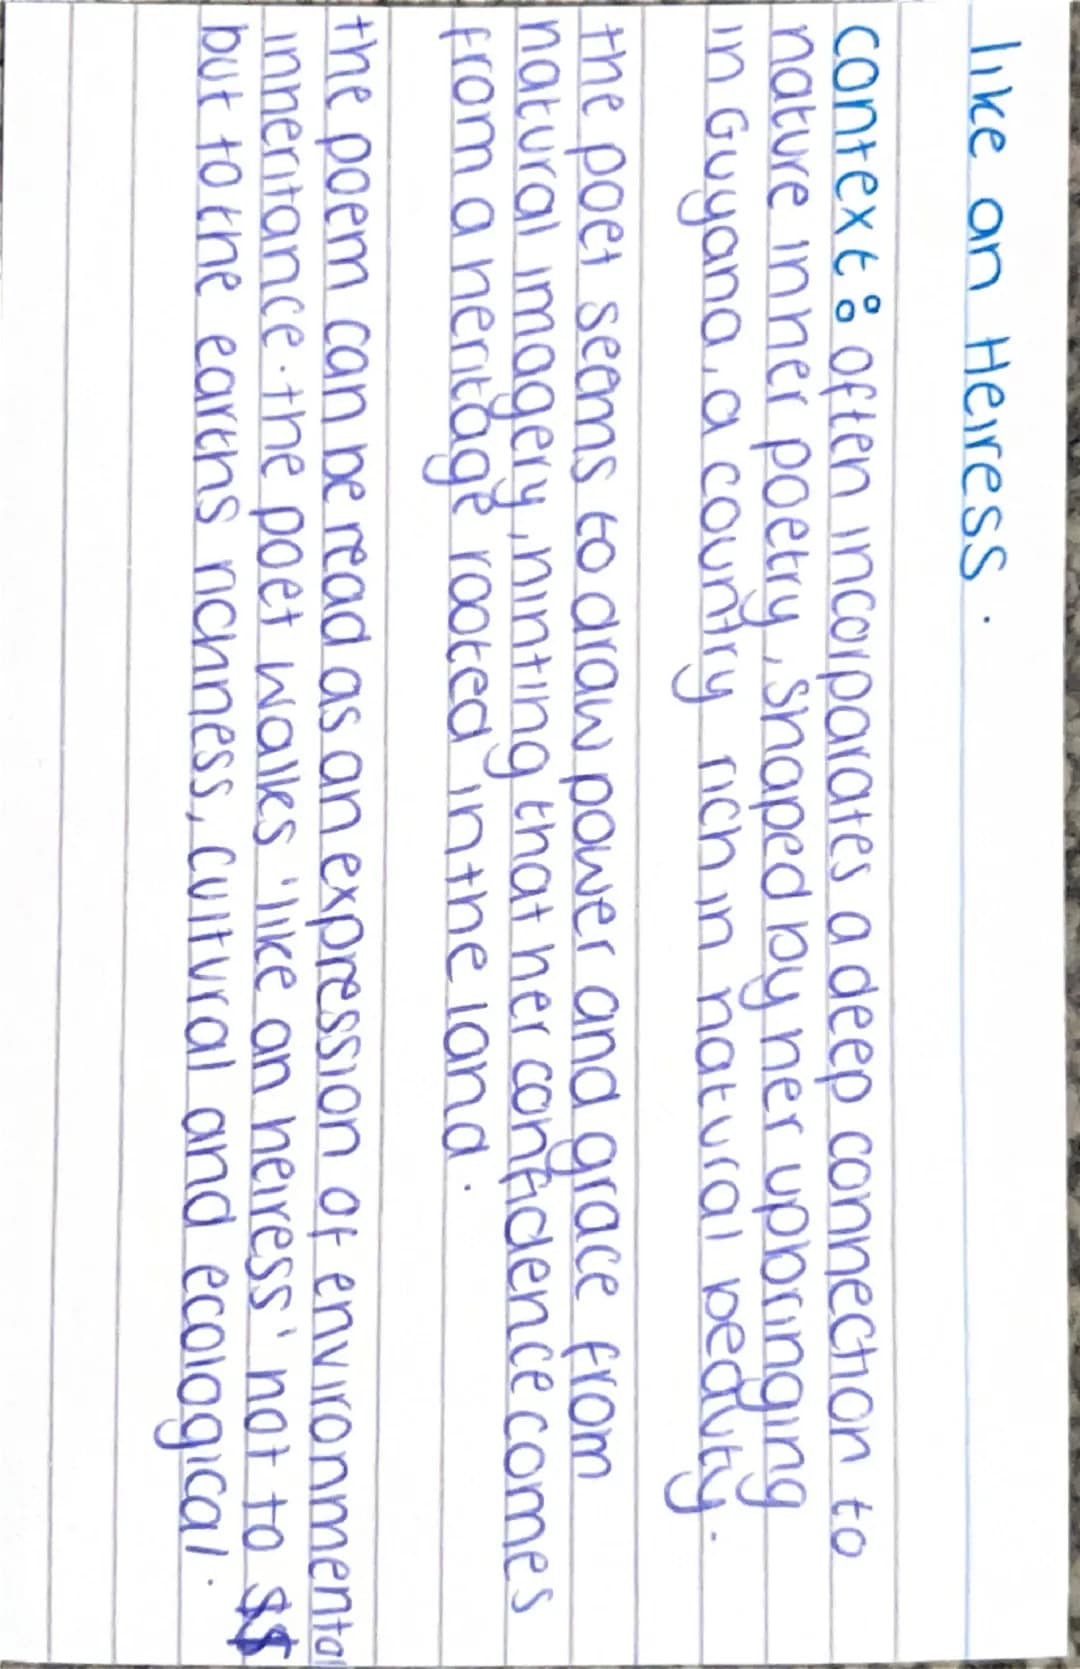 like an Heiress.
context: often incorparates a deep connection to
nature in her poetry, shaped by her upbringing
in Guyana, a country rich in natural beauty.
the poet seems to draw power and grace from
natural imagery, hinting that her confidence comes
from a heritage rooted in the land.
the poem can be read as an expression of environmental
inheritance. the poet walks 'like an heiress' not to $$
but to the earths richness, cultural and ecological.